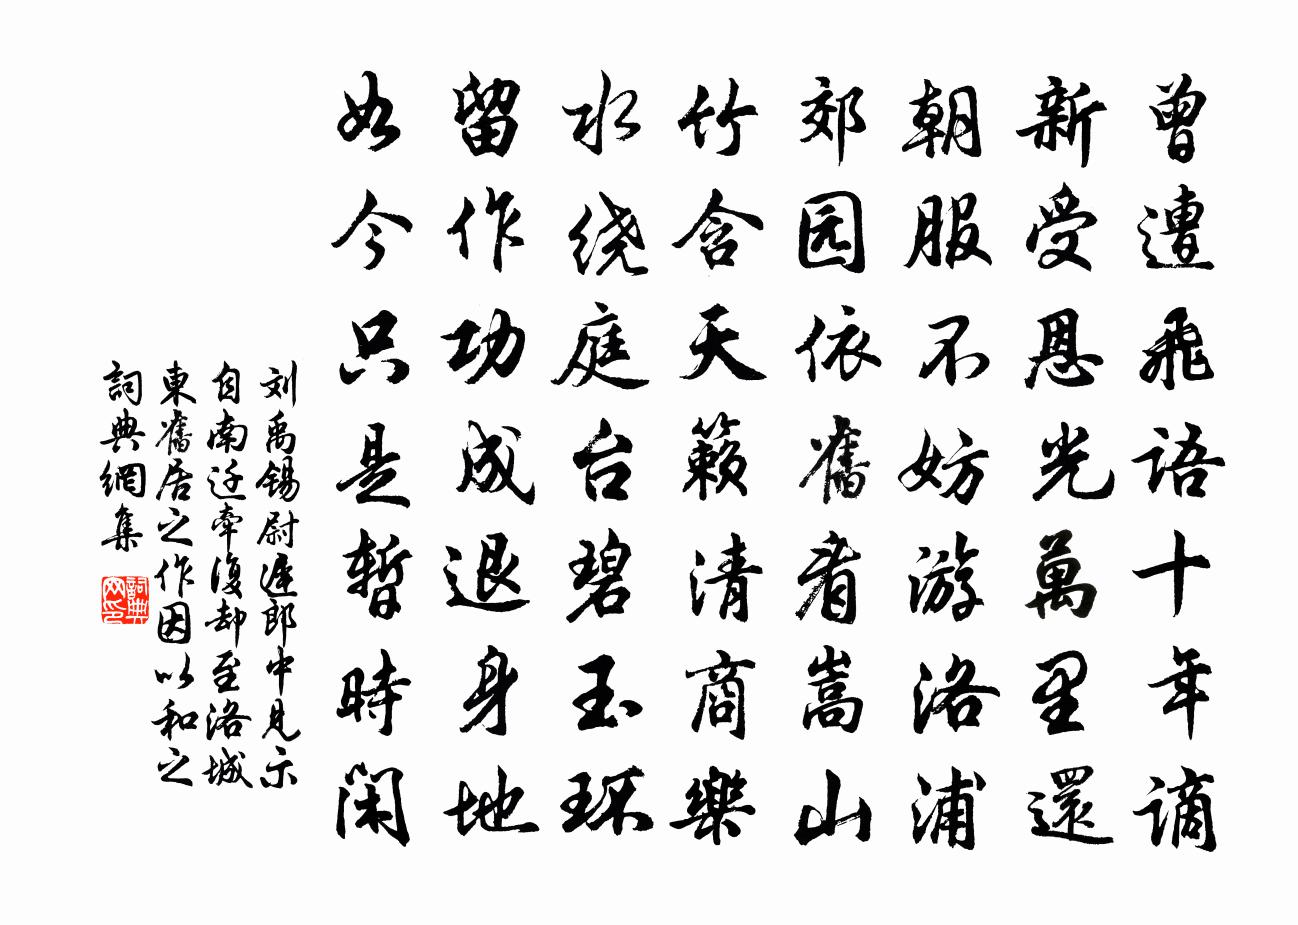 曾遭飛語十年謫
新受恩光萬里還
朝服不妨游洛浦
郊园依舊看嵩山
竹含天籟清商樂
水绕庭台碧玉环
留作功成退身地
如今只是暫時閑
刘禹锡尉遲郎中見示
自南迁牵復却至洛城
東舊居之作因以和之
詞典網集
詞典